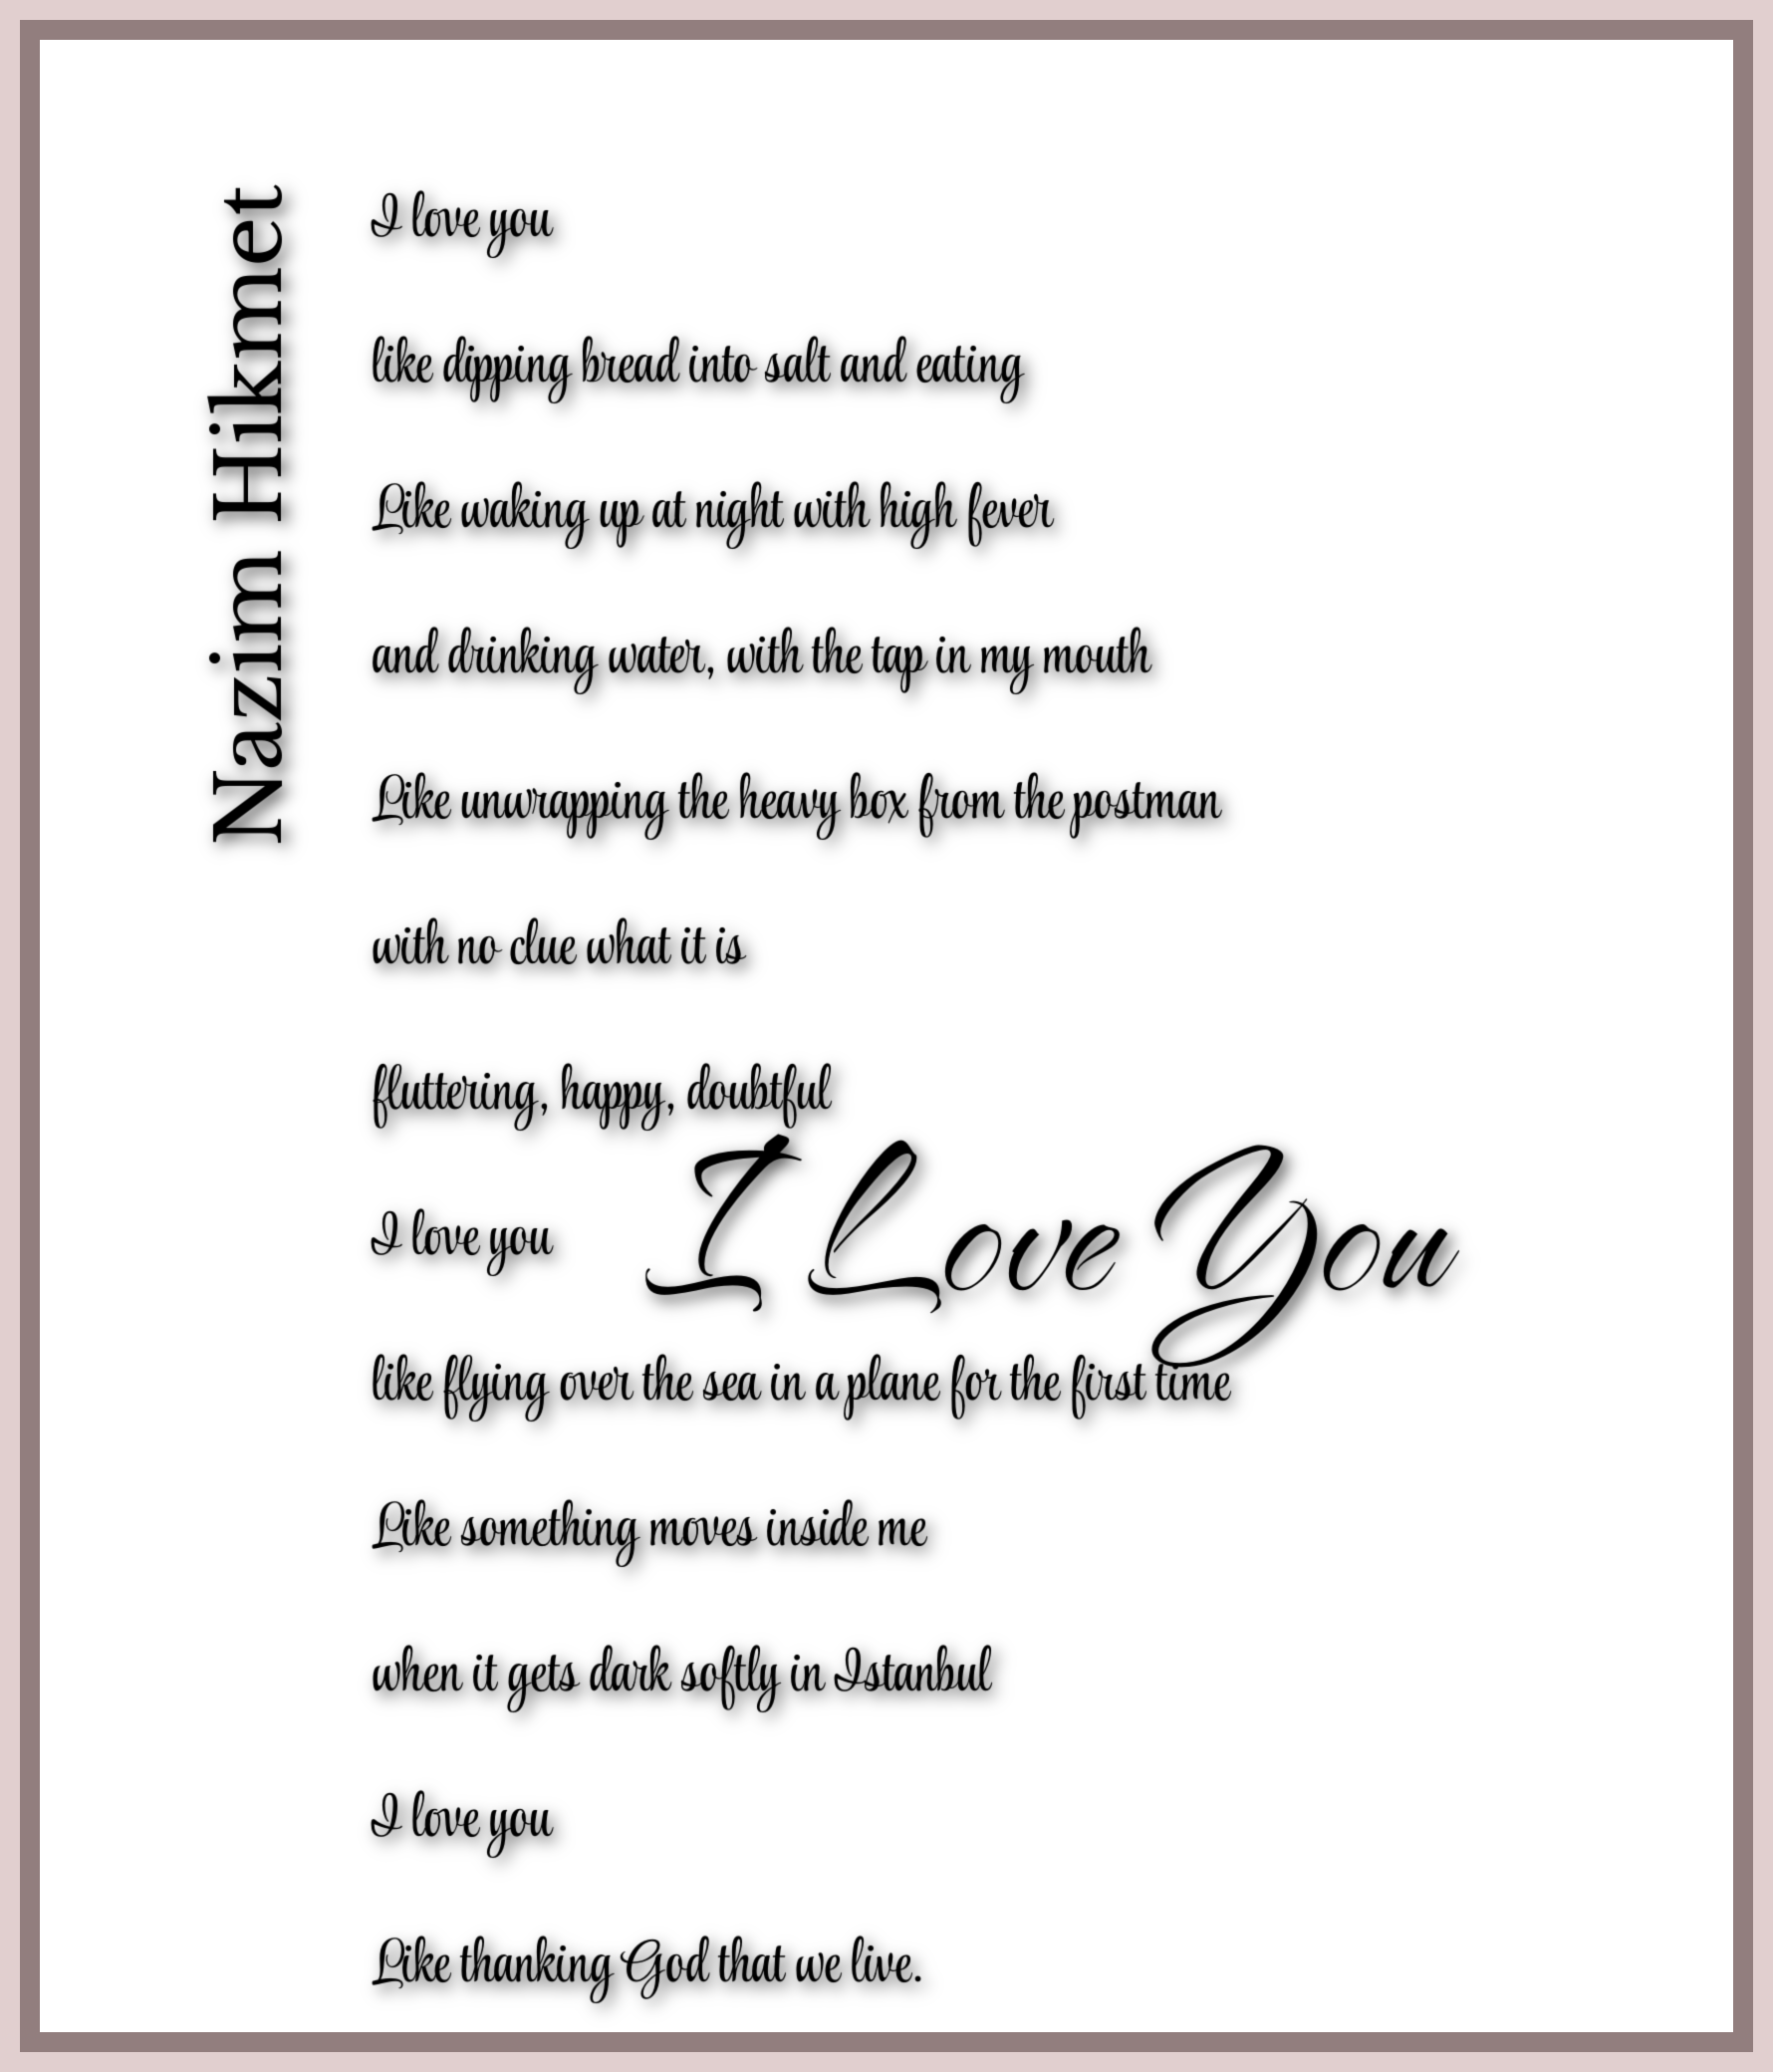 Nazim Hikmet
I love you
like dipping bread into salt and eating
Like waking up at night with high fever
and drinking water, with the tap in my mouth
Like unwrapping the heavy box from the postman
with no clue what it is
fluttering, happy, doubtful
I love you
I Love You
like flying over the sea in a plane for the first time
Like something moves inside me
when it gets dark softly in Istanbul
I love you
Like thanking God that we live.